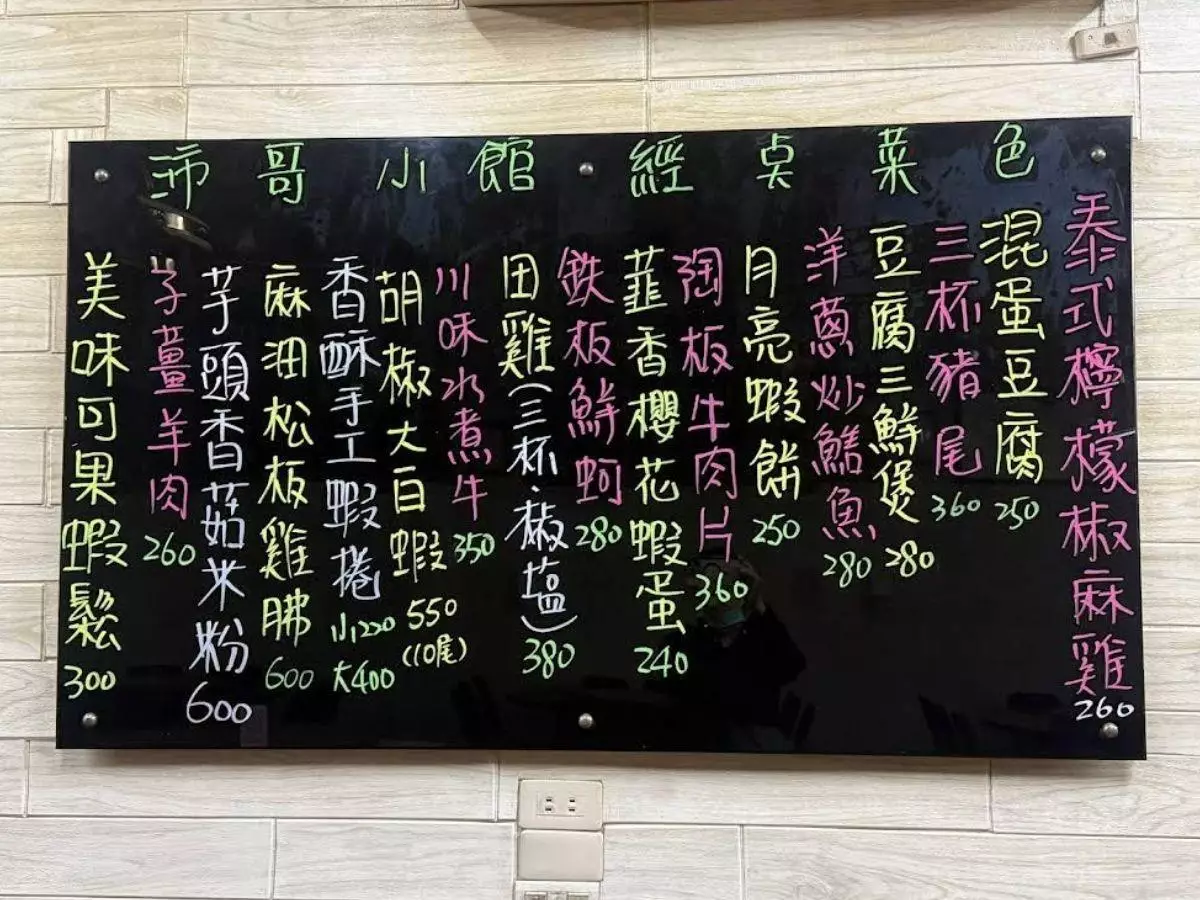 沛哥小館 經典菜色
泰式檸檬椒麻雞 260
混蛋豆腐 250
三杯豬尾 360
豆腐三鮮煲 280
洋蔥炒鱔魚 280
月亮蝦餅 250
陶板牛肉片 360
韮香櫻花蝦蛋 240
鉄板鮮蚵 280
田雞(三杯、椒塩) 380
川味水煮牛 350
胡椒大白蝦 550
(10尾)
香酥手工蝦捲 小220
大400
麻油松板雞胇 600
芋頭香菇米粉 600
子薑羊肉 260
美味可果蝦鬆 300